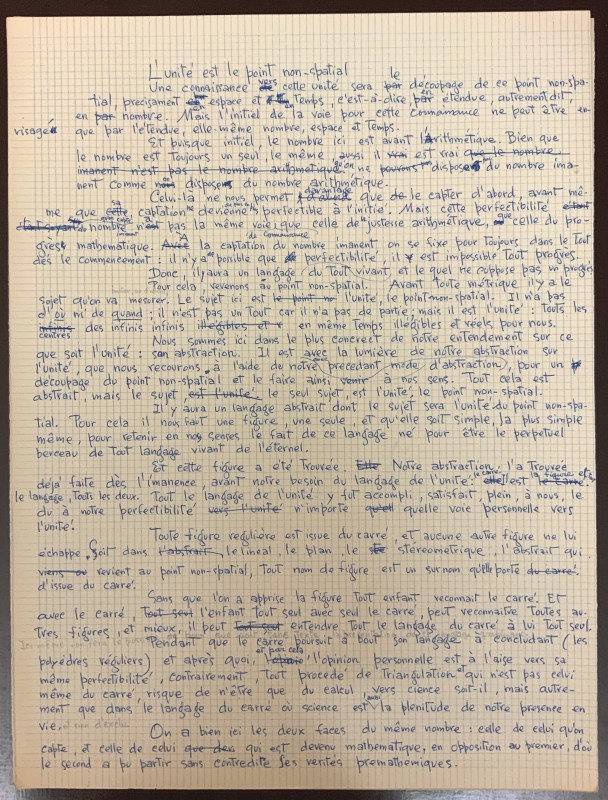 L'unité est le point non-spatial
Une connaissance vers cette unité sera le découpage de ce point non-spa-
tial, precisament en espace et en Temps, c'est-à-dire en étendue, autrement dit,
en par nombre. Mais l'initiel de la voie pour cette connaissance ne peut être en-
visagé que par l'etendue, elle-même nombre, espace et Temps.
Et puisque initiel, le nombre ici est avant l'Arithmétique. Bien que
le nombre est Toujours un seul, le même, aussi il vrai est vrai que le nombre
imanent n'est pas le nombre arithmétique qu'on ne pouvons dispose du nombre ima-
nent comme on dispose du nombre arithmétique.
Celui-là ne nous permet davantage d'abord que de le capter d'abord, avant mê-
me que sa captation devienne perfectible à l'initié. Mais cette perfectibilité étant
du nombre n'est pas la même voie que celle de justesse arithmétique, que celle du pro-
grès mathematique. Avec la captation du nombre imanent on se fixe pour Toujours dans le Tout
dès le commencement : il n'y a de connaissance possible que perfectibilité, il est impossible Tout progrès.
Donc, il y aura un langage du Tout vivant, et lequel ne suppose pas un progrès
Pour cela, revenons au point non-spatial. Avant Toute métrique il y a le
sujet qu'on va mesurer. Le sujet ici est le point no l'unité, le point non-spatial. Il n'a pas
d'où ni de quand ; il n'est pas un Tout car il n'a pas de partie, mais il est l'unité : touts les
infinis centres des infinis infinis illegibles et r en même Temps illegibles et réels pour nous.
Nous sommes ici dans le plus concrect de notre entendement sur ce
que soit l'unité : son abstraction. Il est avec la lumière de notre abstraction sur
l'unité, que nous recourons, à l'aide de notre precedant mode d'abstraction, pour un
découpage du point non-spatial et le faire ainsi venir à nos sens. Tout cela est
abstrait, mais le sujet, est l'unité, le seul sujet, est l'unité, le point non-spatial.
Il y aura un langage abstrait dont le sujet sera l'unité du point non-spa-
tial. Pour cela il nous faut une figure, une seule, et qu'elle soit simple, la plus simple
même, pour retenir en nos senses le fait de ce langage né pour être le perpetuel
berceau de Tout langage vivant de l'éternel.
Et cette figure a été Trouvée. Elle Notre abstraction l'a Trouvée
dejà faite dès l'imanence, avant notre besoin du langage de l'unité : elle est le carré, la figure et
le langage, Touts les deux. Tout le langage de l'unité y fut accompli, satisfait, plein, à nous, le
du à notre perfectibilité vers l'unité n'importe qu'ell quelle voie personnelle vers
l'unité.
Toute figure regulière est issue du carré, et aucune autre figure ne lui
échappe, Soit dans l'abstrait, le lineal, le plan, le stéreometrique, l'abstrait qui
viens ou revient au point non-spatial, tout nom de figure est un surnom qu'elle porte du carré
d'issue du carré.
Sans que l'on a apprise la figure Tout enfant reconnait le carré. Et
avec le carré, Tout seul l'enfant Tout seul avec seul le carré, peut reconnaitre Toutes au-
Tres figures, et mieux, il peut Tout seul entendre Tout le langage du carré à lui Tout seul.
Pendant que le carré poursuit à bout son langage à concludant (les
polyèdres réguliers) et après quoi, et par cela l'opinion personnelle est à l'aise vers sa
même perfectibilité, contrairement, Tout procedé de Triangulation qui n'est pas celui
même du carré, risque de n'être que du calcul, vers cience soit-il, mais autre-
ment que dans le langage du carré où science est avec la plenitude de notre présence en
vie.
On a bien ici les deux faces du même nombre : celle de celui qu'on
capte, et celle de celui que den qui est devenu mathematique, en opposition au premier, d'où
le second a pu partir sans contredite ses verités premathemiques.